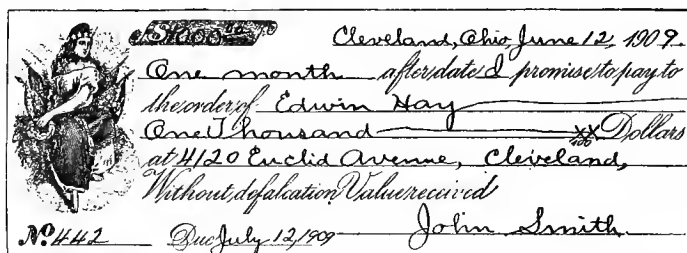 $1000 00/100 Cleveland, Ohio, June 12, 1909.
One month after date I promise to pay to
the order of Edwin Hay
One Thousand xx/100 Dollars
at 4120 Euclid Avenue, Cleveland,
Without defalcation Value received
No. 442 Due July 12, 1909 John Smith